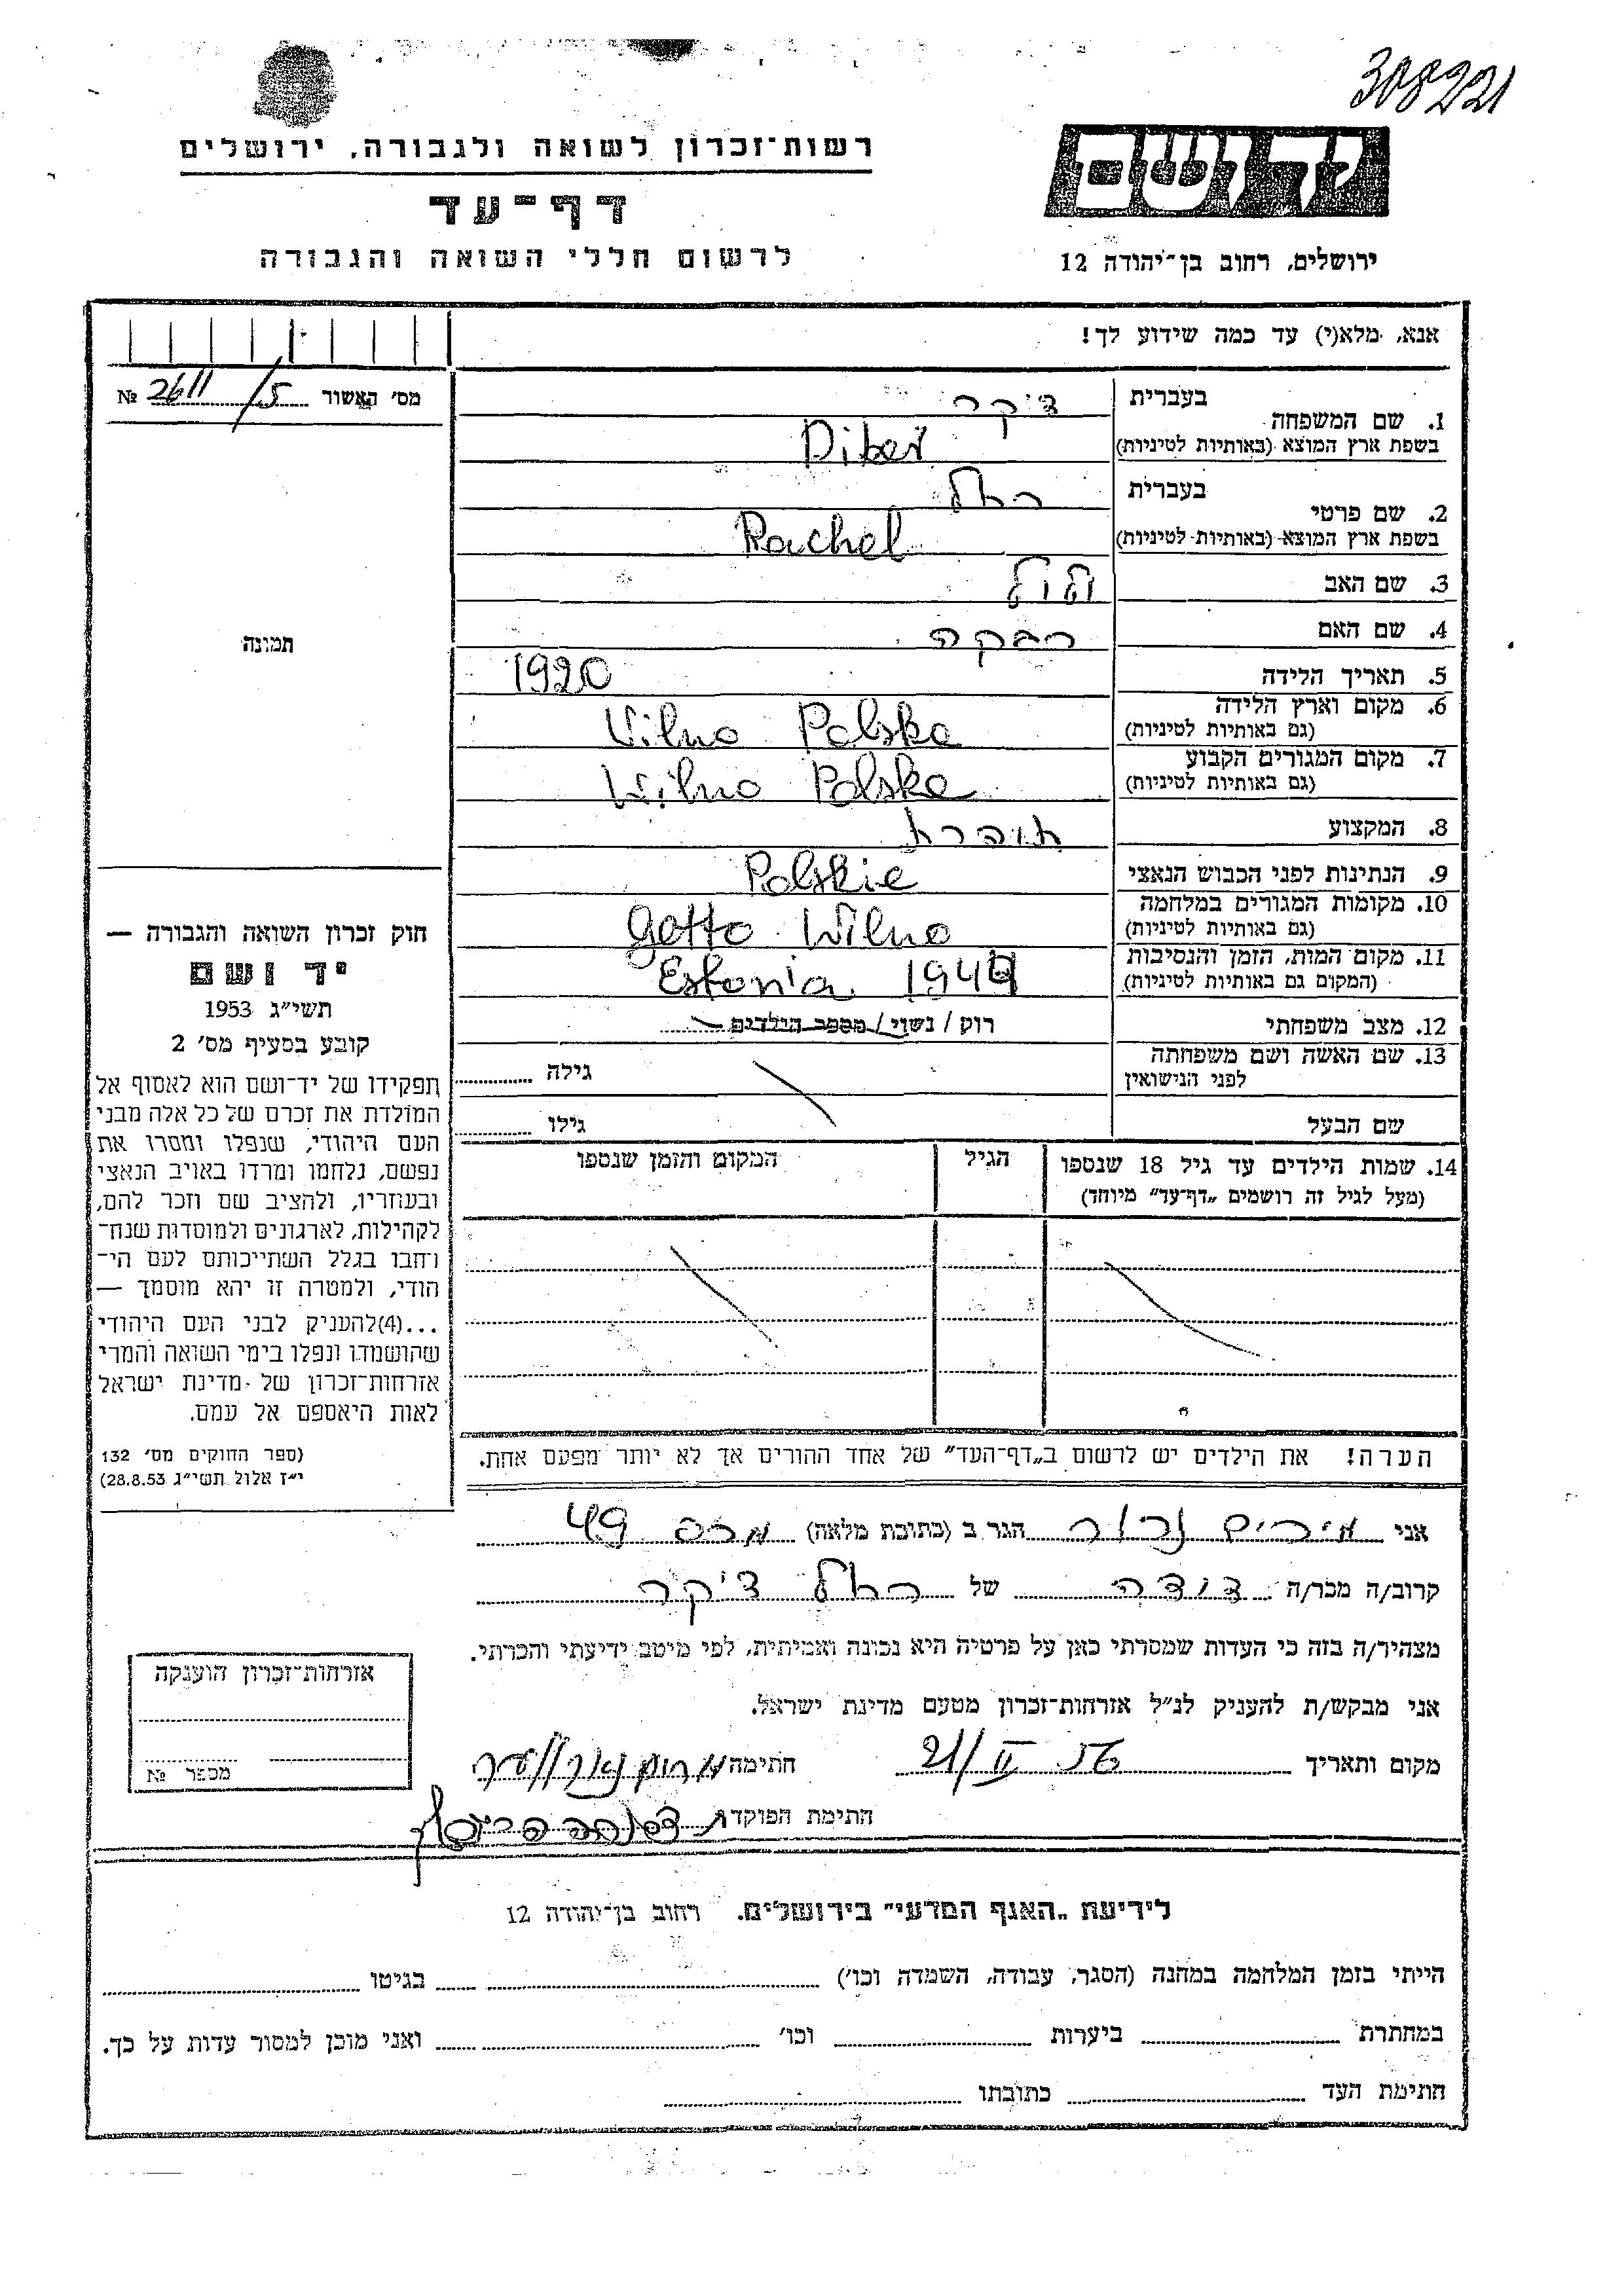 308221
יד ושם
רשות־זכרון לשואה ולגבורה, ירושלים
דף־עד
לרשום חללי השואה והגבורה
ירושלים, רחוב בן־יהודה 12
אנא, מלא(י) עד כמה שידוע לך!
מס׳ האשור 2611/5 №
1. שם המשפחה
בעברית דיקר
בשפת ארץ המוצא (באותיות לטיניות)
2. שם פרטי
בעברית רחל
בשפת ארץ המוצא (באותיות לטיניות) Rachel
3. שם האב
4. שם האם רבקה
5. תאריך הלידה 1920
6. מקום וארץ הלידה
(גם באותיות לטיניות) Vilno Polska
7. מקום המגורים הקבוע
(גם באותיות לטיניות) Wilno Polska
8. המקצוע תופרת
9. הנתינות לפני הכבוש הנאצי Polskie
10. מקומות המגורים במלחמה
(גם באותיות לטיניות) Getto Wilno
11. מקום המות, הזמן והנסיבות
(המקום גם באותיות לטיניות) Estonia 1944
12. מצב משפחתי רוק / נשוי / מספר הילדים
13. שם האשה ושם משפחתה
לפני הנישואין גילה
שם הבעל גילו
14. שמות הילדים עד גיל 18 שנספו הגיל המקום והזמן שנספו
(מעל לגיל זה רושמים „דף־עד” מיוחד)
הערה! את הילדים יש לרשום ב„דף־העד” של אחד ההורים אך לא יותר מפעם אחת.
תמונה
חוק זכרון השואה והגבורה —
יד ושם
תשי״ג 1953
קובע בסעיף מס׳ 2
תפקידו של יד־ושם הוא לאסוף אל
המולדת את זכרם של כל אלה מבני
העם היהודי, שנפלו ומסרו את
נפשם, נלחמו ומרדו באויב הנאצי
ובעוזריו, ולהציב שם וזכר להם,
לקהילות, לארגונים ולמוסדות שנח־
רחבו בגלל השתייכותם לעם הי־
הודי, ולמטרה זו יהא מוסמך —
...(4)להעניק לבני העם היהודי
שהושמדו ונפלו בימי השואה והמרי
אזרחות־זכרון של מדינת ישראל
לאות היאספם אל עמם.
(ספר החוקים מס׳ 132
י״ז אלול תשי״ג 28.8.53)
אני מרים הגר ב (כתובת מלאה) 49
קרוב/ה מכר/ה דודה של רחל דיקר
מצהיר/ה בזה כי העדות שמסרתי כאן על פרטיה היא נכונה ואמיתית, לפי מיטב ידיעתי והכרתי.
אני מבקש/ת להעניק לנ״ל אזרחות־זכרון מטעם מדינת ישראל.
מקום ותאריך 21/II 56 חתימה
חתימת הפוקד
אזרחות־זכרון הוענקה
מספר №
לידיעת „האגף המדעי” בירושלים. רחוב בן־יהודה 12
הייתי בזמן המלחמה במחנה (הסגר, עבודה, השמדה וכו׳) בגיטו
במחתרת ביערות וכו׳ ואני מוכן למסור עדות על כך.
חתימת העד כתובתו